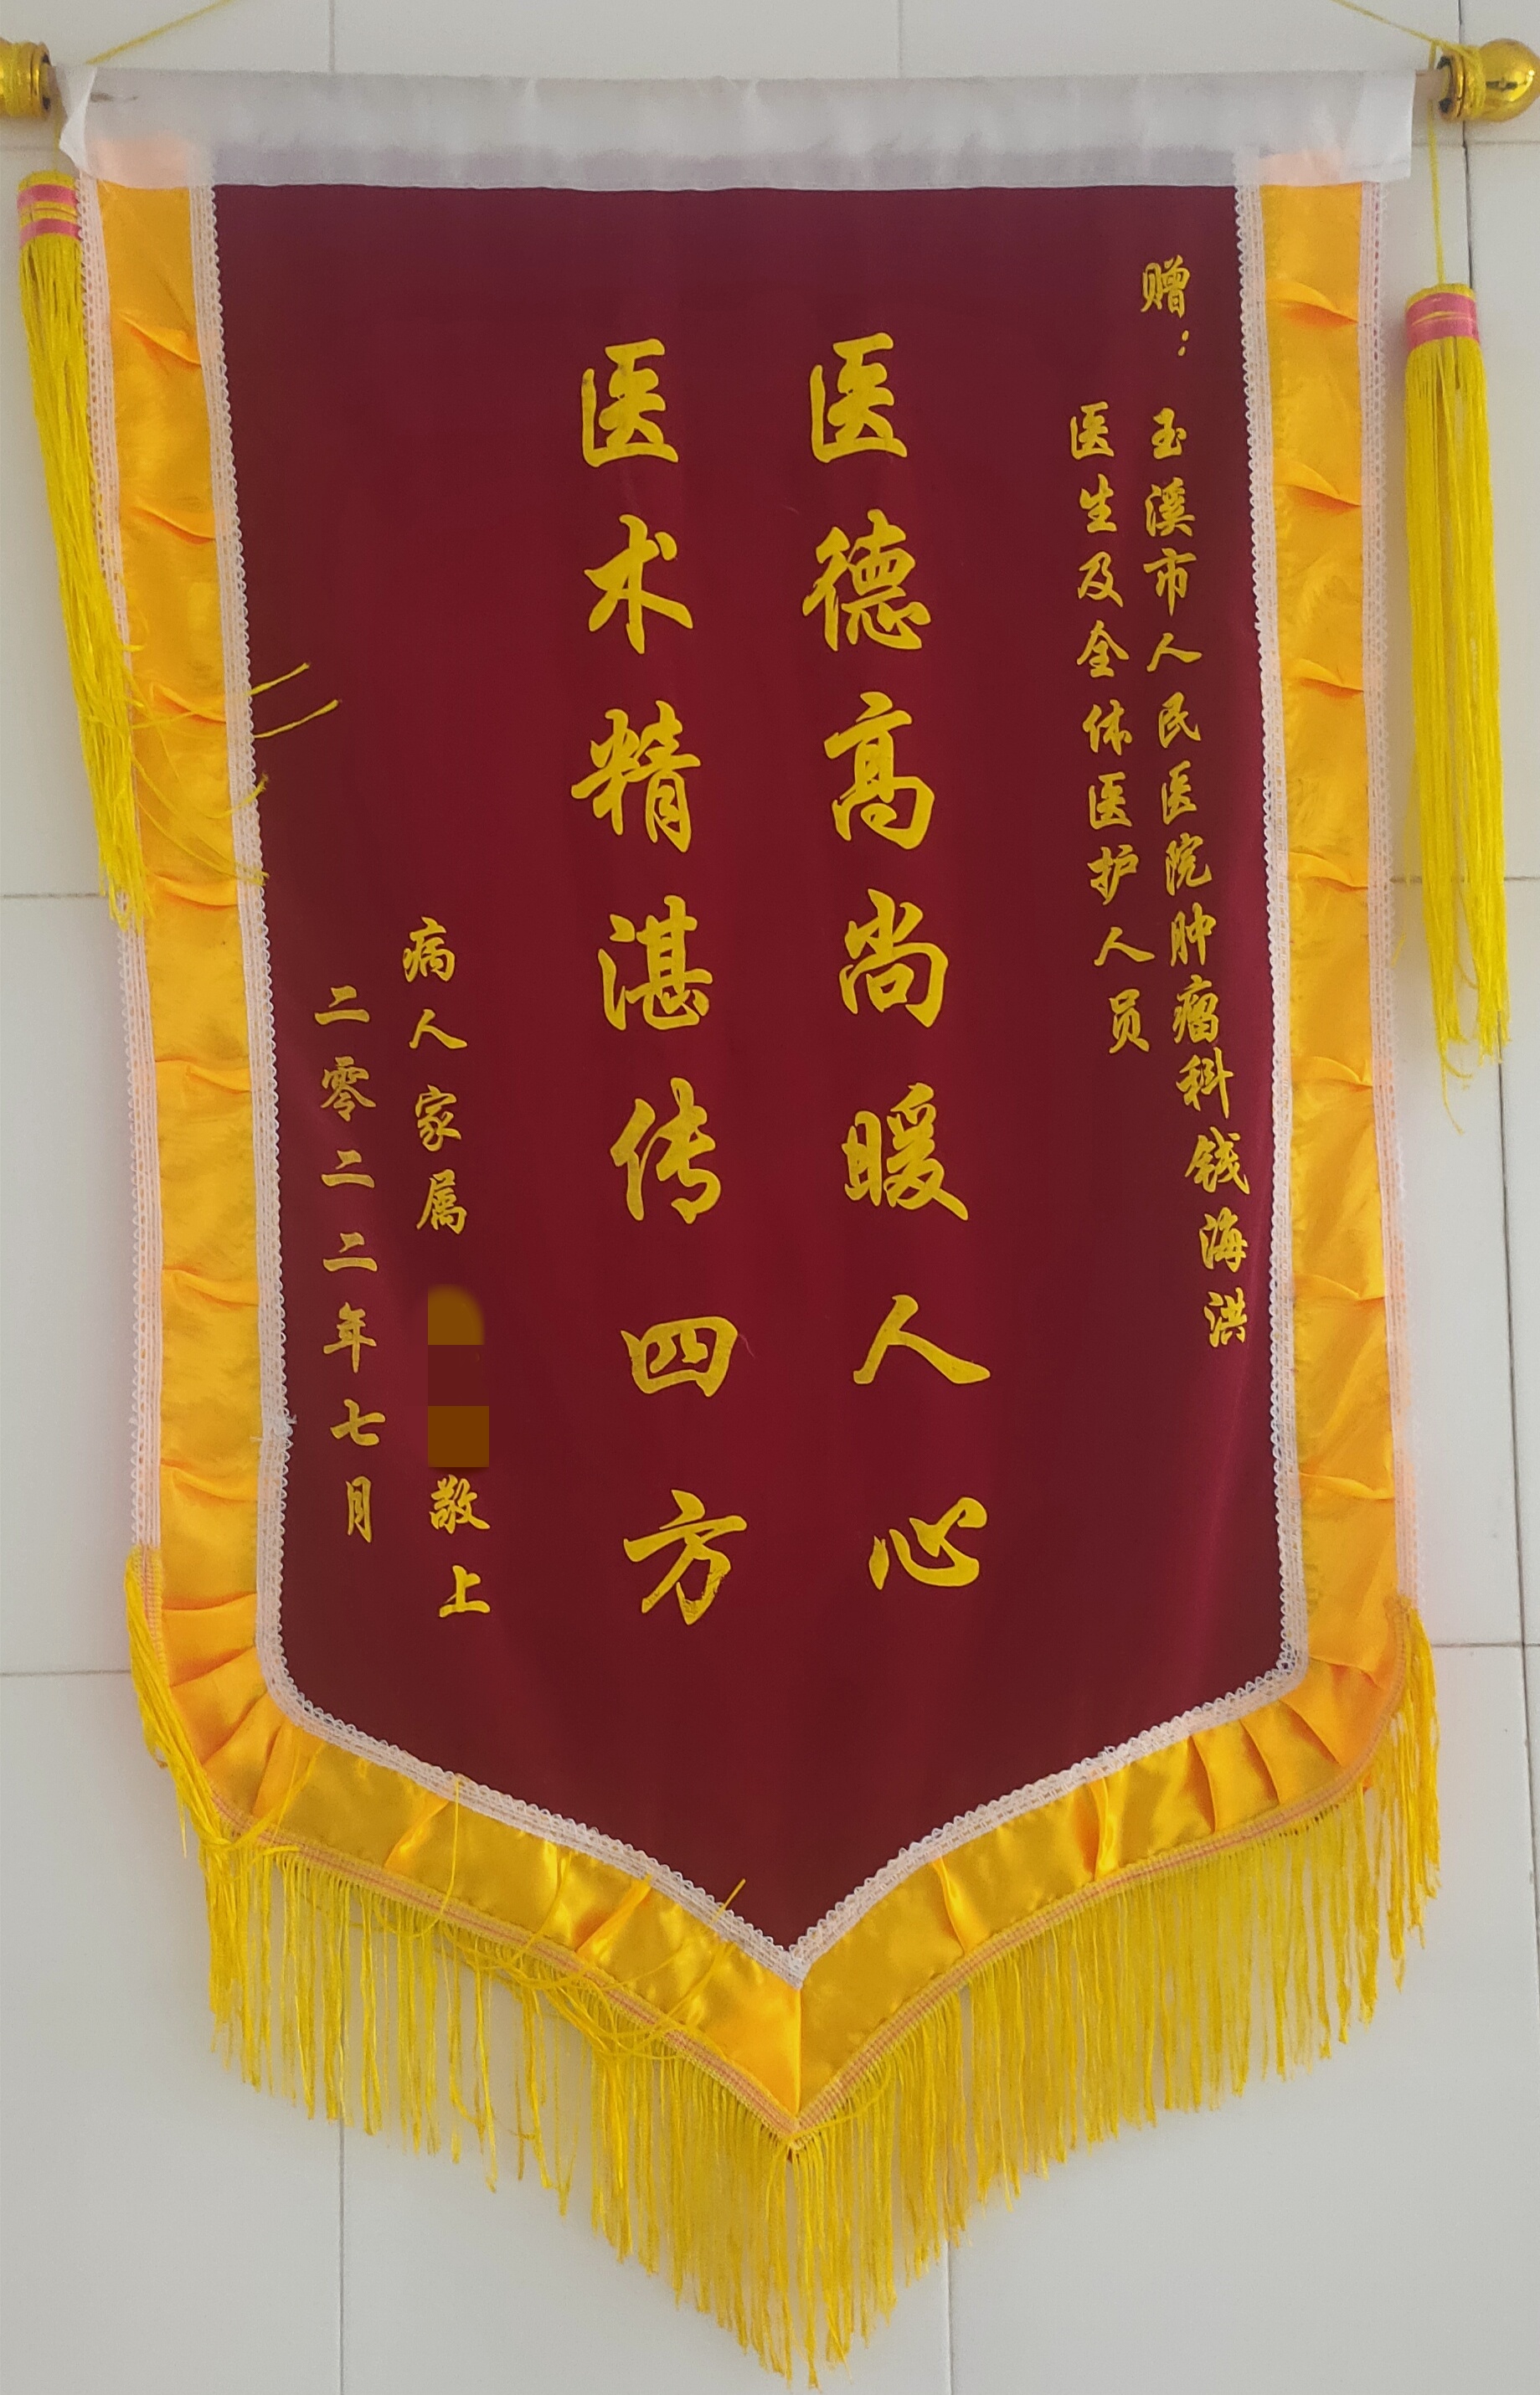 赠：玉溪市人民医院肿瘤科钱海洪
医生及全体医护人员
医德高尚暖人心
医术精湛传四方
病人家属 敬上
二零二二年七月